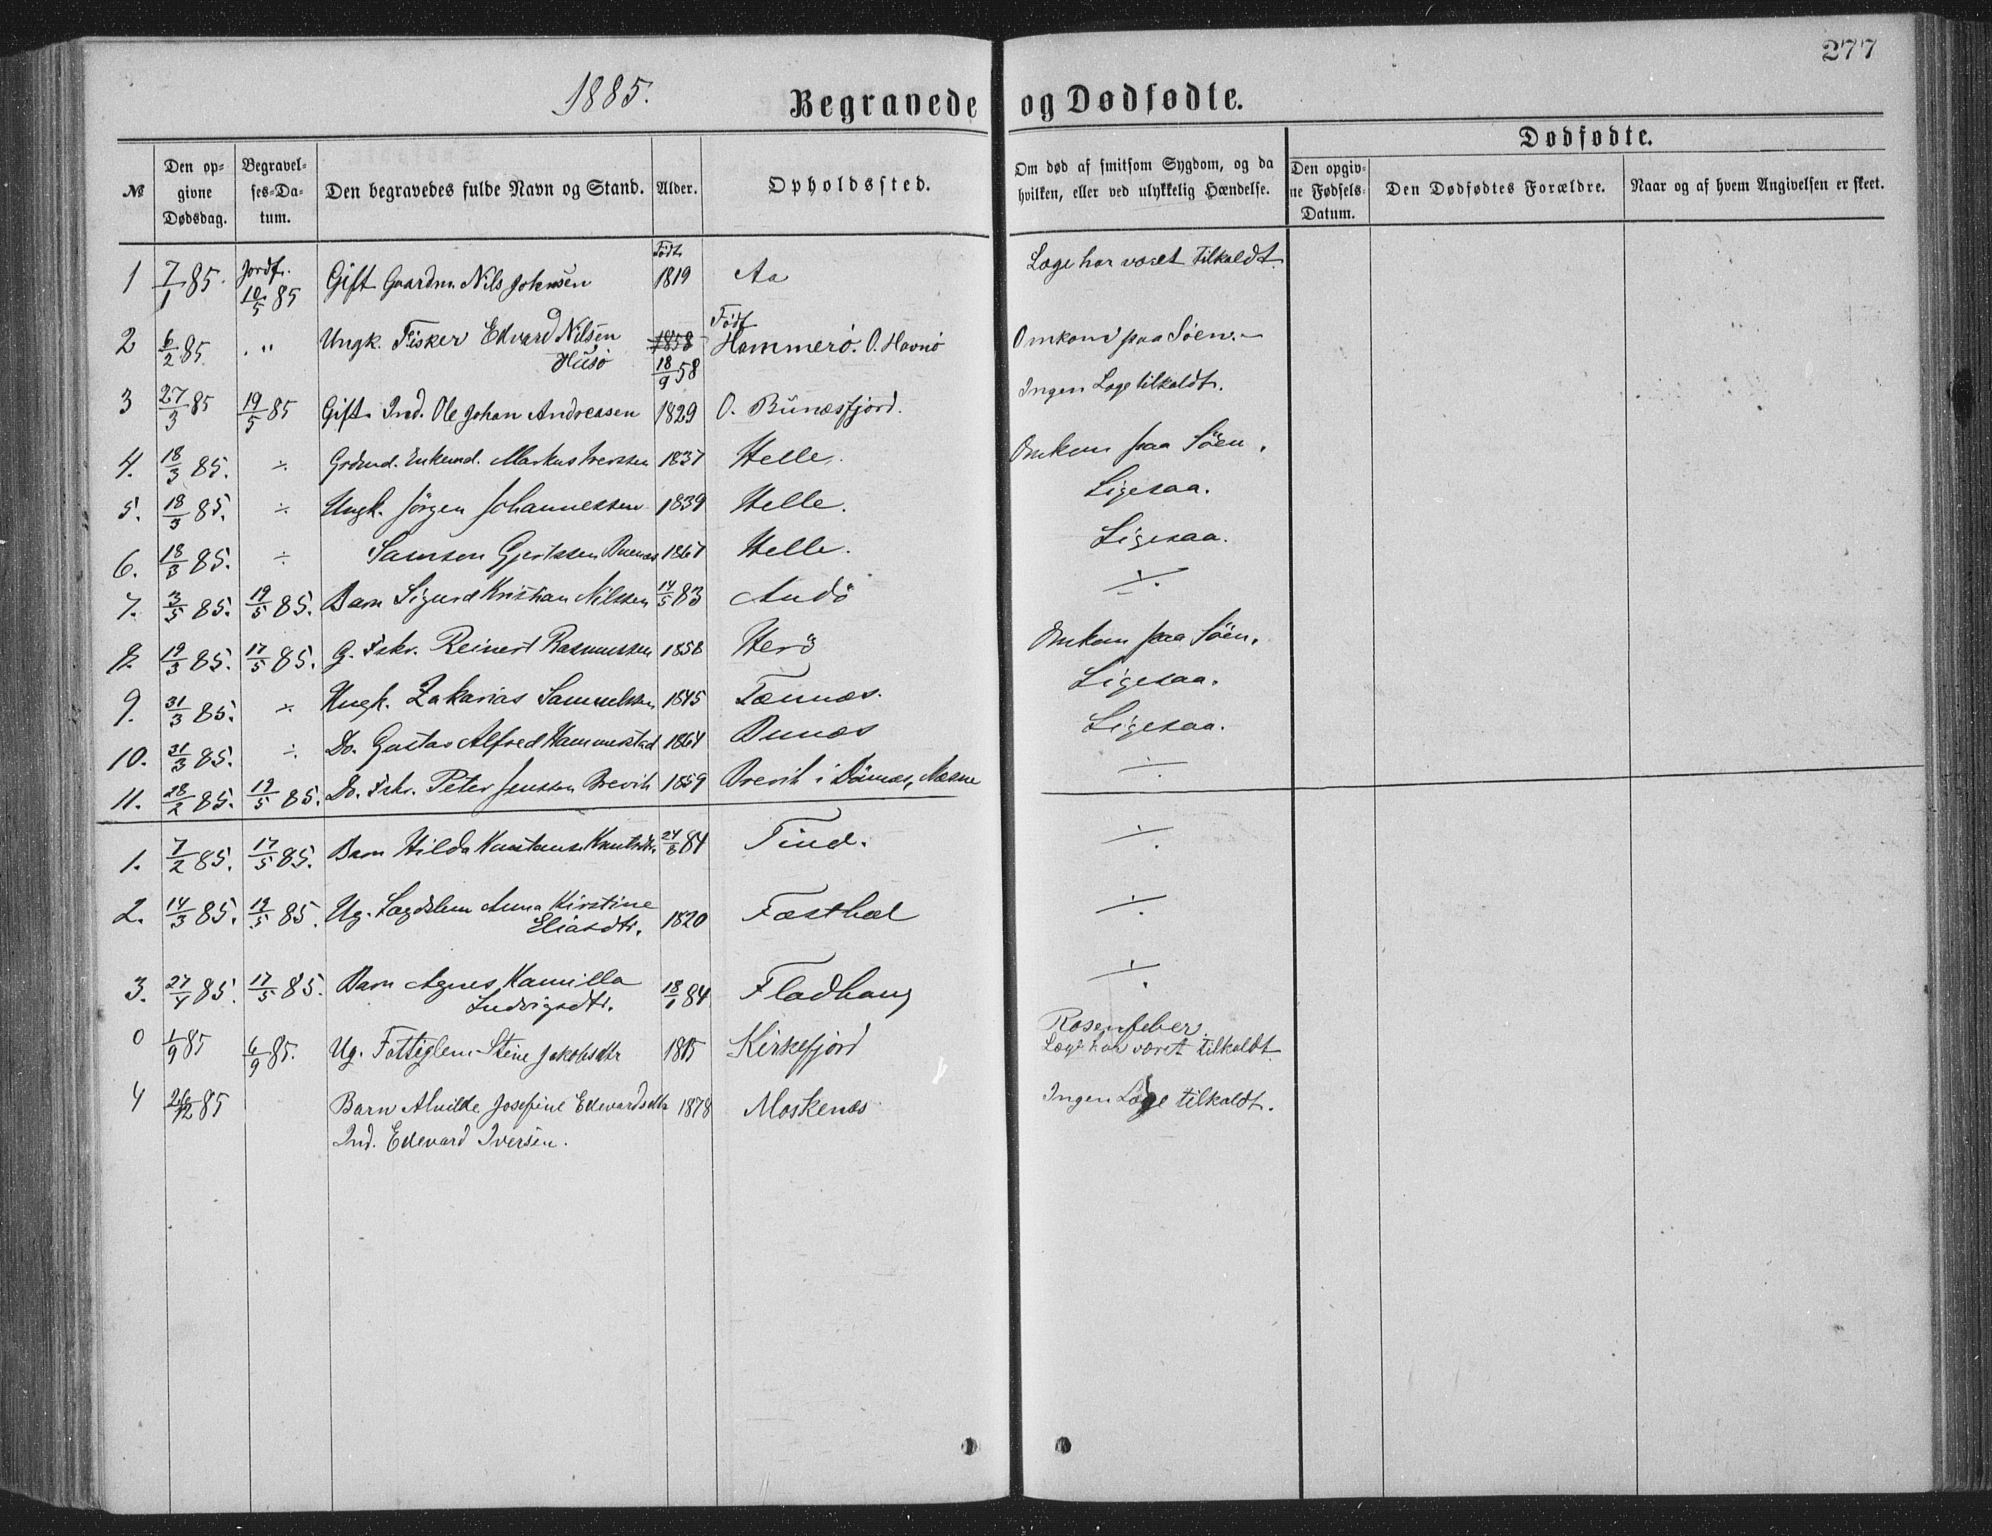 277
1885.
Begravede og Dødfødte.
№
Den opgivne Dødsdag.
Begravelses-Datum.
Den begravedes fulde Navn og Stand.
Alder.
Opholdssted.
Om død af smitsom Sygdom, og da hvilken, eller ved ulykkelig Hændelse.
Dødfødte.
Den opgivne Fødsels-Datum.
Den Dødfødtes Forældre.
Naar og af hvem Angivelsen er skeet.
1 7/1 85. Jordf. 10/5 85 Gift Gaardm. Nils Johnsen Født 1819 Aa Læge har været tilkaldt.
2 6/2 85. . " Ungk. Fisker Edvard Nilsen Husö 1858 18/9 58 Født Hammerö. O. Havnö Omkom paa Søen.
3 27/3 85 19/5 85 Gift Ind. Ole Johan Andreasen 1829 O. Bunæsfjord. Ingen Læge tilkaldt.
4. 18/3 85. ÷ Enkemd. Markus Iverssen 1837 Helle. Omkom paa Söen.
5. 18/3 85. ÷ Ungk. Jörgen Johannessen 1839 Helle. Ligesaa.
6. 18/3 85. ÷ Samson Gjertssen 1867 Helle. Ligesaa.
7. 3/5 85. 19/5 85. Barn Sigurd Kristian Nilssen 14/5 83 Andö ÷
8. 19/3 85. 17/5 85. G. Fskr. Reinert Rasmussen 1858 Herö Omkom paa Söen.
9. 31/3 85. ÷ Ungk. Zakarias Samuelssen 1845 Tennæs. Ligesaa.
10. 31/3 85. ÷ Do. Gustav Alfred Hammerstad 1864 Bunæs Ligesaa.
11. 28/2 85. 19/5 85. Do. Fskr. Peter Jenssen Brevik 1859 Brevik i Dönnæs, Næsne ÷
1. 7/2 85. 17/5 85. Barn Hilda Knutsdtr. 24/8 84 Tind. ÷
2. 14/3 85. 19/5 85. Ug. Lægdslem Anna Kirstine Eliasdtr. 1820 Fæsthæl ÷
3. 27/4 85. 17/5 85. Barn Agnes Kamilla Ludvigsdtr. 18/1 84 Fladhaug ÷
0 1/9 85 6/9 85. Ug. Fattiglem Stine Jakobsdtr 1815 Kirkefjord Rosenfeber. Læge har været tilkaldt
4 26/12 85 Barn Alvilde Josefine Edevardsdtr 1878 Moskenæs Ingen Læge tilkaldt.
Ind. Edevard Iversen.